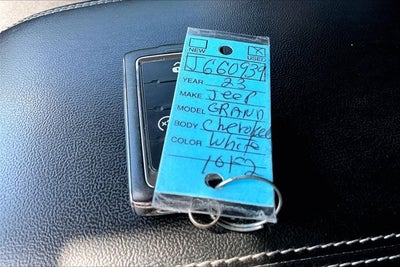 NEW X USED
J660939
YEAR 23
MAKE Jeep
MODEL GRAND
BODY Cherokee
COLOR White